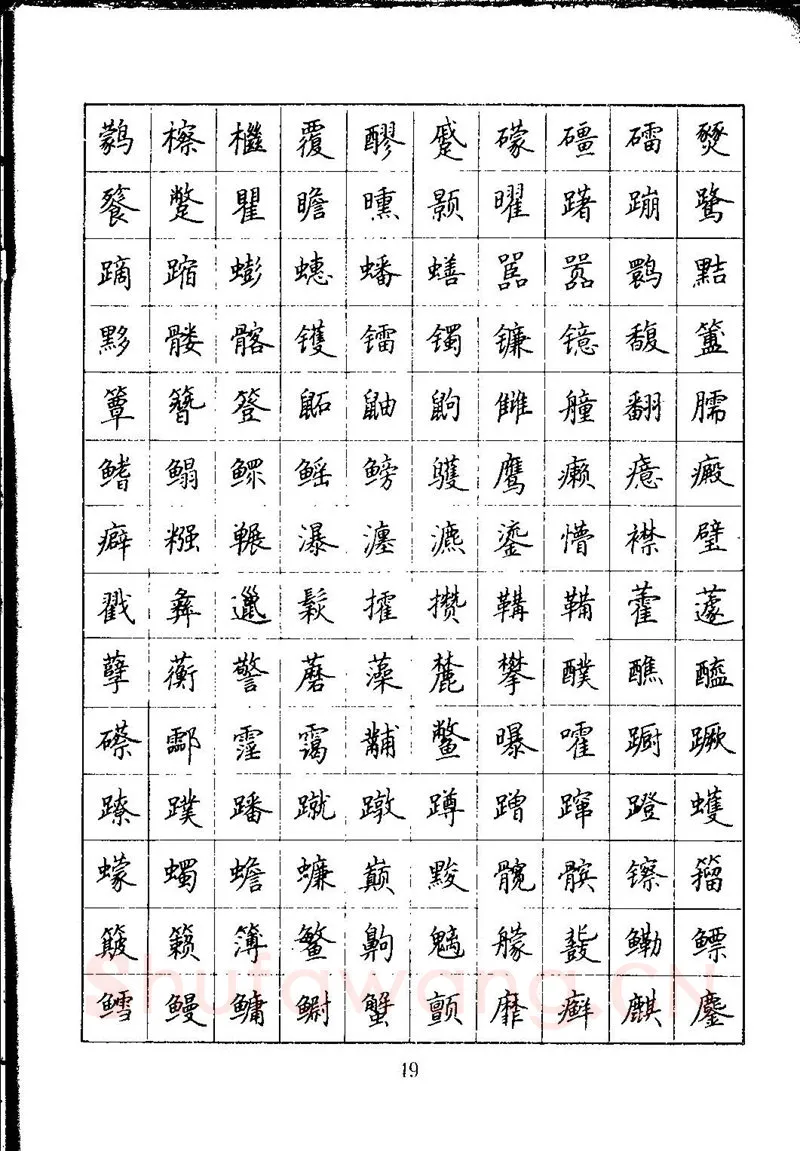 鹲檫檵覆醪蹙礞礓礌燹
餮蹩瞿瞻曛颢曜躇蹦鹭
蹢蹜蟛蟪蟠蟮嚚嚣鹮黠
黟髅髂镬镭镯镰镱馥簠
簟簪簦鼫鼬鼩雠艟翻臑
鳍鳎鳏鳐鳑鹱鹰癞癔癜
癖糨冁瀑瀍瀌鎏懵襟璧
戳彝邋鬏攉攒鞲鞴藿蘧
孽蘅警蘑藻麓攀醭醮醯
礤酃霪霭黼鳖曝嚯蹰蹶
蹽蹼蹯蹴蹾蹲蹭蹿蹬蠖
蠓蠋蟾蠊巅黢髋髌镲籀
簸籁簿鳘齁魑艨鼗鳓鳔
Shufawang.CN
鳕鳗鳙鳚蟹颤靡癣麒鏖
19